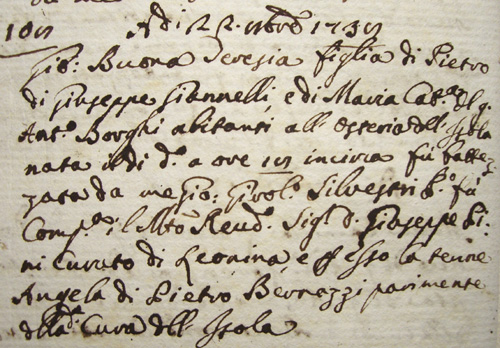 Adi 22. 9bre 1739
109
Gio: Buona Teresia figlia di Pietro
di Giuseppe Giannelli, e di Maria Cat.a del q.
Ant.o Borghi abitanti all'Osteria dell'Isola
nata il di d.o a ore 19 incirca fu battez
zata da me Gio: Girol.o Silvestri P.o fu
Comp.e il Mto Reud. Sig.r d. Giuseppe Pi:
ni Curato di Leonina, e p esso la tenne
Angela di Pietro Bernazzi parimente
della d.a Cura dell'Isola